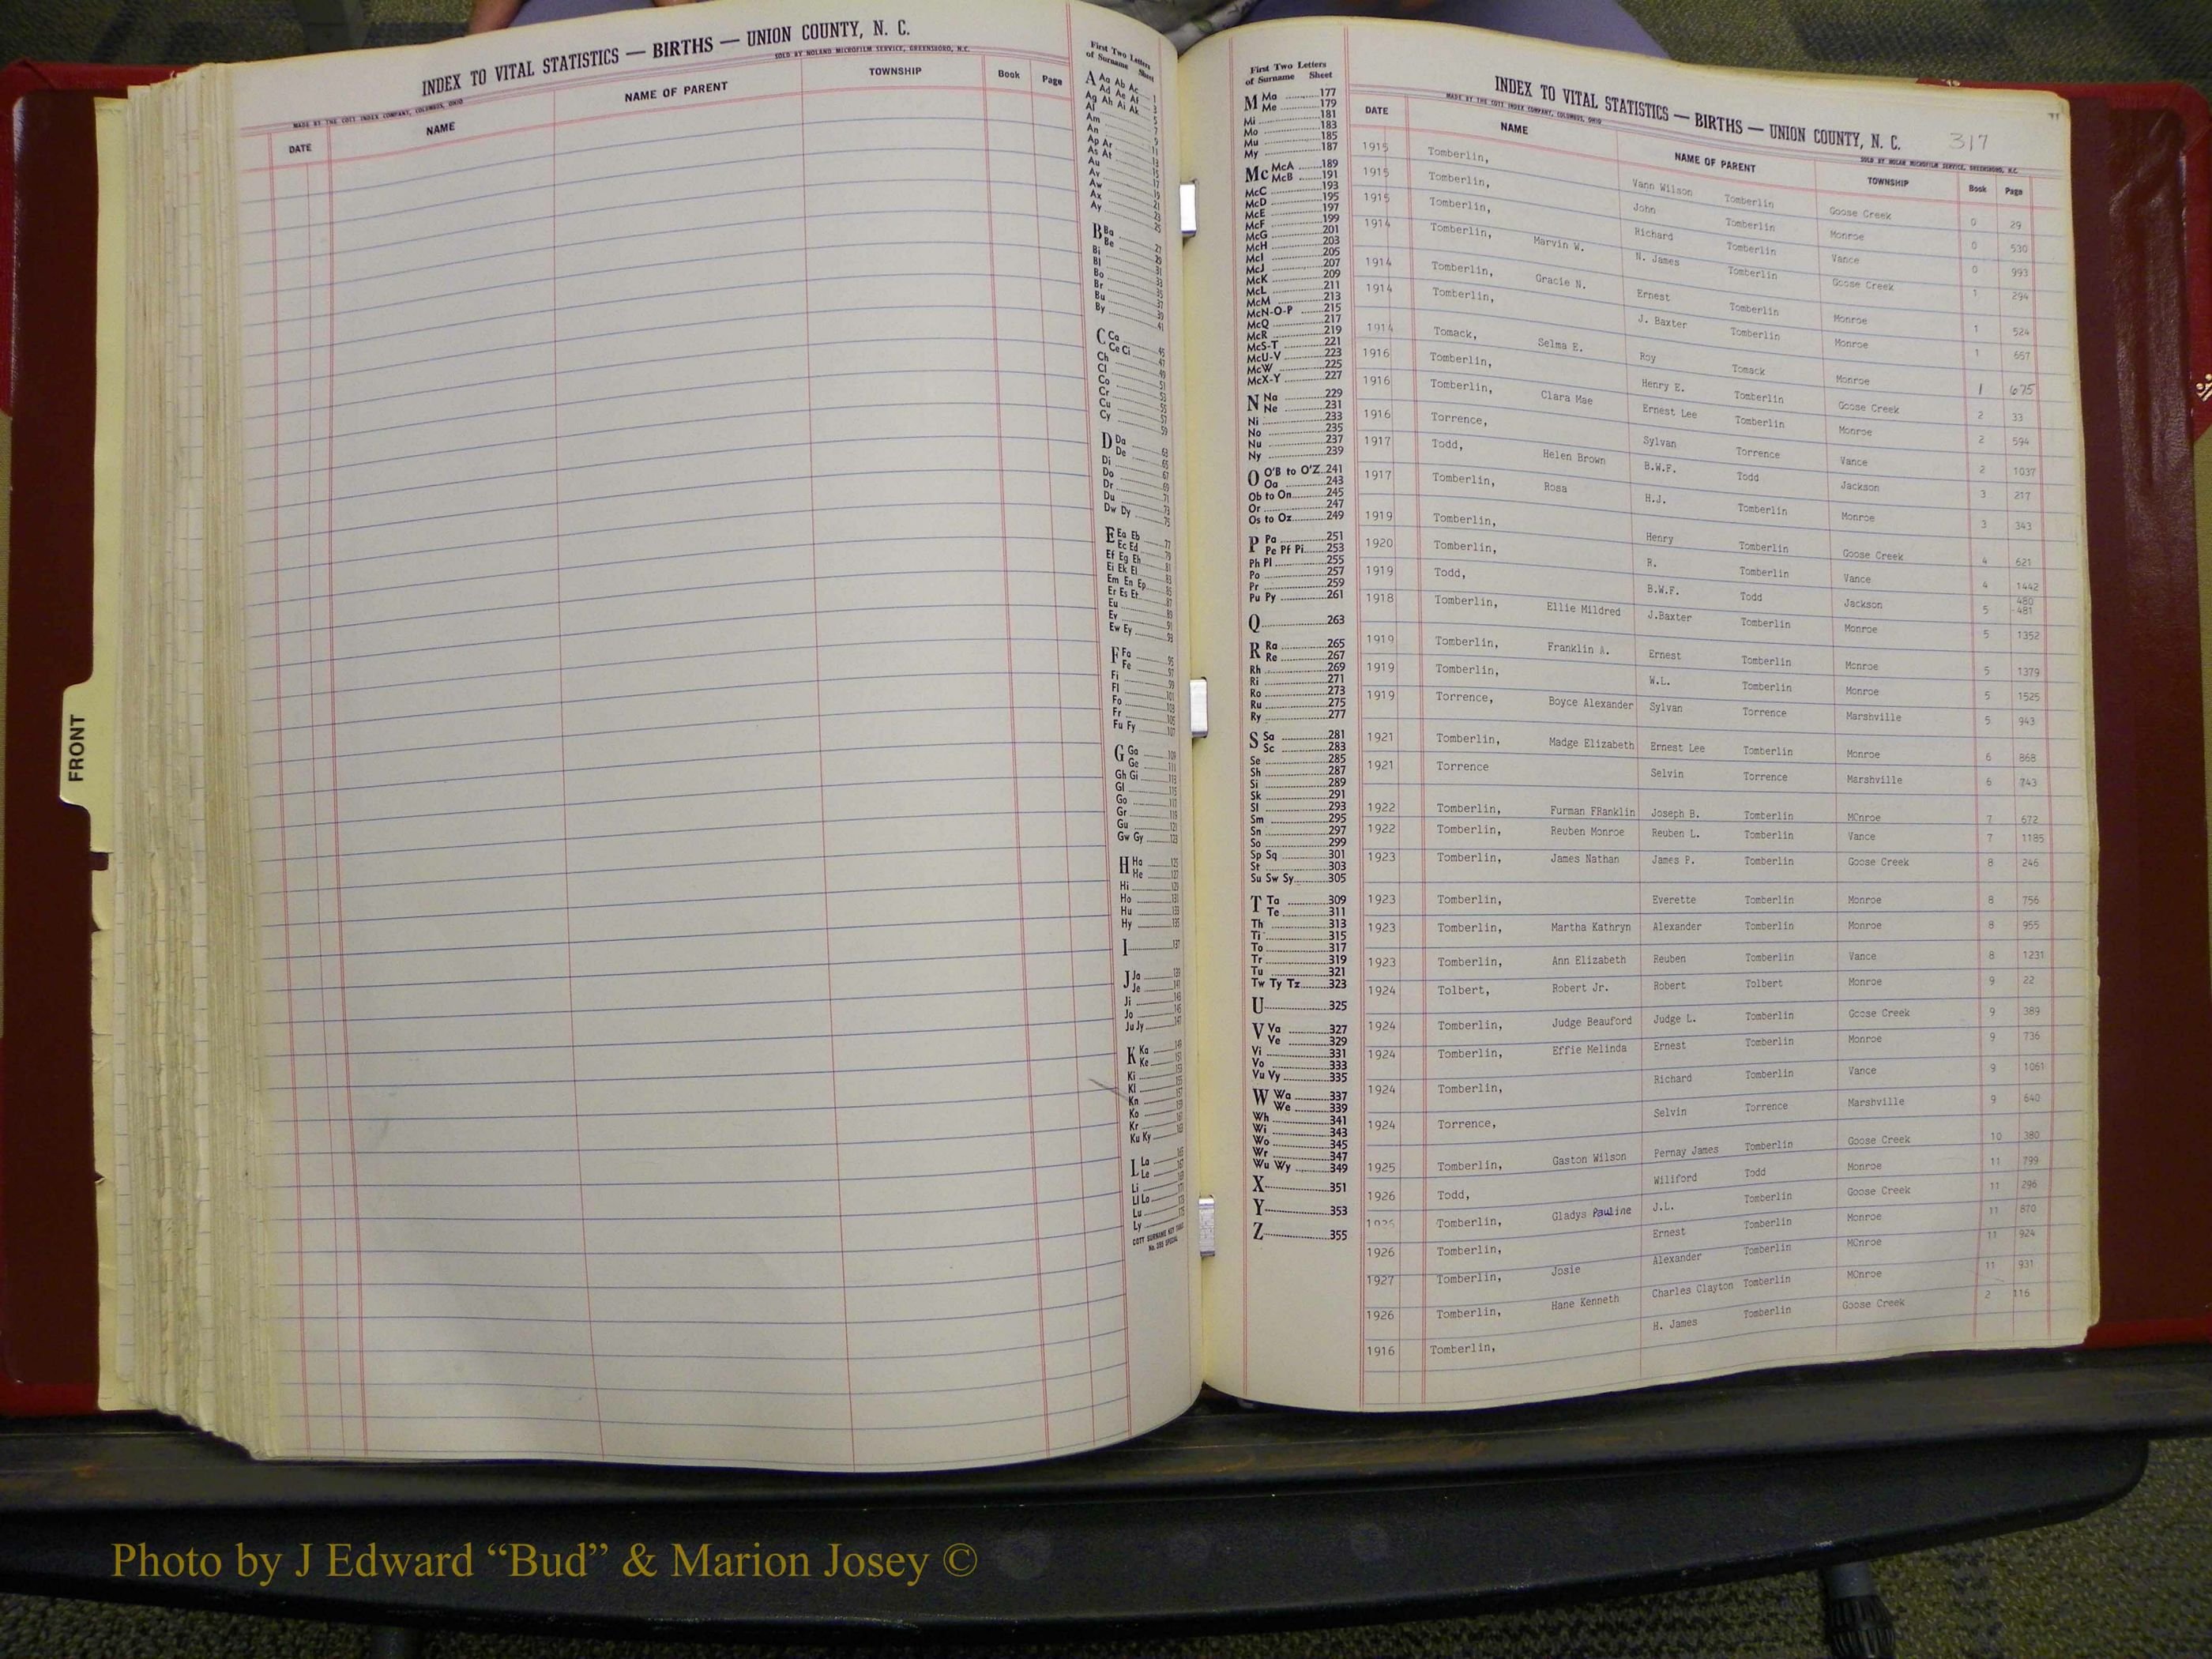 INDEX TO VITAL STATISTICS — BIRTHS — UNION COUNTY, N. C.
MADE BY THE COTT INDEX COMPANY, COLUMBUS, OHIO SOLD BY NOLAND MICROFILM SERVICE, GREENSBORO, N.C.
DATE NAME NAME OF PARENT TOWNSHIP Book Page
FRONT
First Two Letters
of Surname Sheet
A Aa Ab Ac 1
Ad Ae Af 3
Ag Ah Ai Ak 5
Al 7
Am 9
An 11
Ap Ar 13
As At 15
Au 17
Av 19
Aw 21
Ax 23
Ay 25
B Ba 27
Be 29
Bi 31
Bl 33
Bo 35
Br 37
Bu 39
By 41
C Ca 45
Ce Ci 47
Ch 49
Cl 51
Co 53
Cr 55
Cu 57
Cy 59
D Da 63
De 65
Di 67
Do 69
Dr 71
Du 73
Dw Dy 75
E Ea Eb 77
Ec Ed 79
Ef Eg Eh 81
Ei Ek El 83
Em En Ep 85
Er Es Et 87
Eu 89
Ev 91
Ew Ey 93
F Fa 95
Fe 97
Fi 99
Fl 101
Fo 103
Fr 105
Fu Fy 107
G Ga 109
Ge 111
Gh Gi 113
Gl 115
Go 117
Gr 119
Gu 121
Gw Gy 123
H Ha 125
He 127
Hi 129
Ho 131
Hu 133
Hy 135
I 137
J Ja 139
Je 141
Ji 143
Jo 145
Ju Jy 147
K Ka 149
Ke 151
Ki
Kl
Kn
Ko
Kr
Ku Ky
L La
Le
Li
Ll Lo
Lu
Ly
COTT SURNAME KEY TABS
First Two Letters
of Surname Sheet
M Ma 177
Me 179
Mi 181
Mo 183
Mu 185
My 187
Mc McA 189
McB 191
McC 193
McD 195
McE 197
McF 199
McG 201
McH 203
McI 205
McJ 207
McK 209
McL 211
McM 213
McN-O-P 215
McQ 217
McR 219
McS-T 221
McU-V 223
McW 225
McX-Y 227
N Na 229
Ne 231
Ni 233
No 235
Nu 237
Ny 239
O O'B to O'Z 241
Oa 243
Ob to On 245
Or 247
Os to Oz 249
P Pa 251
Pe Pf Pi 253
Ph Pl 255
Po 257
Pr 259
Pu Py 261
Q 263
R Ra 265
Re 267
Rh 269
Ri 271
Ro 273
Ru 275
Ry 277
S Sa 281
Sc 283
Se 285
Sh 287
Si 289
Sk 291
Sl 293
Sm 295
Sn 297
So 299
Sp Sq 301
St 303
Su Sw Sy 305
T Ta 309
Te 311
Th 313
Ti 315
To 317
Tr 319
Tu 321
Tw Ty Tz 323
U 325
V Va 327
Ve 329
Vi 331
Vo 333
Vu Vy 335
W Wa 337
We 339
Wh 341
Wi 343
Wo 345
Wr 347
Wu Wy 349
X 351
Y 353
Z 355
INDEX TO VITAL STATISTICS — BIRTHS — UNION COUNTY, N. C. 317
MADE BY THE COTT INDEX COMPANY, COLUMBUS, OHIO SOLD BY NOLAN MICROFILM SERVICE, GREENSBORO, N.C.
DATE NAME NAME OF PARENT TOWNSHIP Book Page
1915 Tomberlin, Vann Wilson Tomberlin Goose Creek 0 29
1915 Tomberlin, John Tomberlin Monroe 0 530
1915 Tomberlin, Richard Tomberlin Vance 0 993
1914 Tomberlin, Marvin W. N. James Tomberlin Goose Creek 1 294
1914 Tomberlin, Gracie N. Ernest Tomberlin Monroe 1 524
1914 Tomberlin, J. Baxter Tomberlin Monroe 1 657
1914 Tomack, Selma E. Roy Tomack Monroe 1 675
1916 Tomberlin, Henry E. Tomberlin Goose Creek 2 33
1916 Tomberlin, Clara Mae Ernest Lee Tomberlin Monroe 2 594
1916 Torrence, Sylvan Torrence Vance 2 1037
1917 Todd, Helen Brown B.W.F. Todd Jackson 3 217
1917 Tomberlin, Rosa H.J. Tomberlin Monroe 3 343
1919 Tomberlin, Henry Tomberlin Goose Creek 4 621
1920 Tomberlin, R. Tomberlin Vance 4 1442
1919 Todd, B.W.F. Todd Jackson 5 480 481
1918 Tomberlin, Ellie Mildred J.Baxter Tomberlin Monroe 5 1352
1919 Tomberlin, Franklin A. Ernest Tomberlin Monroe 5 1379
1919 Tomberlin, W.L. Tomberlin Monroe 5 1525
1919 Torrence, Boyce Alexander Sylvan Torrence Marshville 5 943
1921 Tomberlin, Madge Elizabeth Ernest Lee Tomberlin Monroe 6 868
1921 Torrence Selvin Torrence Marshville 6 743
1922 Tomberlin, Furman FRanklin Joseph B. Tomberlin MOnroe 7 672
1922 Tomberlin, Reuben Monroe Reuben L. Tomberlin Vance 7 1185
1923 Tomberlin, James Nathan James P. Tomberlin Goose Creek 8 246
1923 Tomberlin, Everette Tomberlin Monroe 8 756
1923 Tomberlin, Martha Kathryn Alexander Tomberlin Monroe 8 955
1923 Tomberlin, Ann Elizabeth Reuben Tomberlin Vance 8 1231
1924 Tolbert, Robert Jr. Robert Tolbert Monroe 9 22
1924 Tomberlin, Judge Beauford Judge L. Tomberlin Goose Creek 9 389
1924 Tomberlin, Effie Melinda Ernest Tomberlin Monroe 9 736
1924 Tomberlin, Richard Tomberlin Vance 9 1061
1924 Torrence, Selvin Torrence Marshville 9 640
1925 Tomberlin, Gaston Wilson Pernay James Tomberlin Goose Creek 10 380
1926 Todd, Wiliford Todd Monroe 11 799
Tomberlin, Gladys Pauline J.L. Tomberlin Goose Creek 11 296
1926 Tomberlin, Ernest Tomberlin Monroe 11 870
1927 Tomberlin, Josie Alexander Tomberlin MOnroe 11 924
1926 Tomberlin, Hane Kenneth Charles Clayton Tomberlin MOnroe 11 931
1916 Tomberlin, H. James Tomberlin Goose Creek 2 116
Photo by J Edward “Bud” & Marion Josey ©